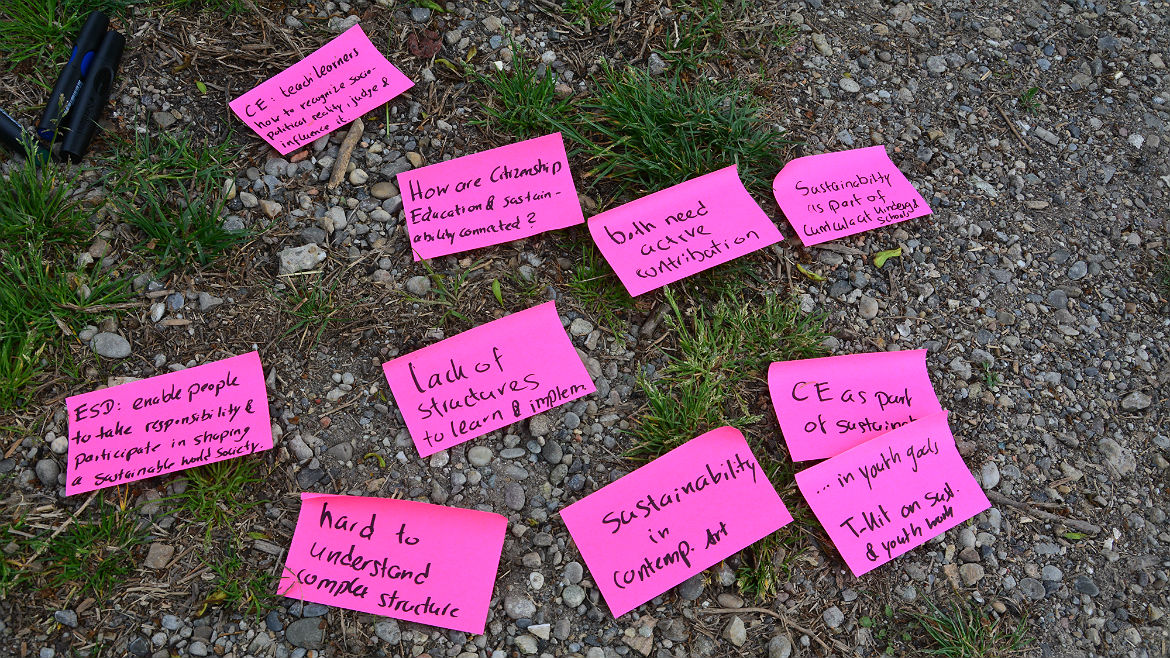 CE: teach learners
how to recognize socio-
political reality, judge &
influence it.
How are Citizenship
Education & sustain-
ability connated?
both need
active
contribution
Sustainability
as part of
Curricula at
Schools
ESD: enable people
to take responsibility &
participate in shaping
a sustainable world society.
lack of
structures
to learn & implem.
CE as part
of sustainab
... in youth goals
T-Kit on sust.
& youth work
hard to
understand
complex structure
Sustainability
in
contemp. Art